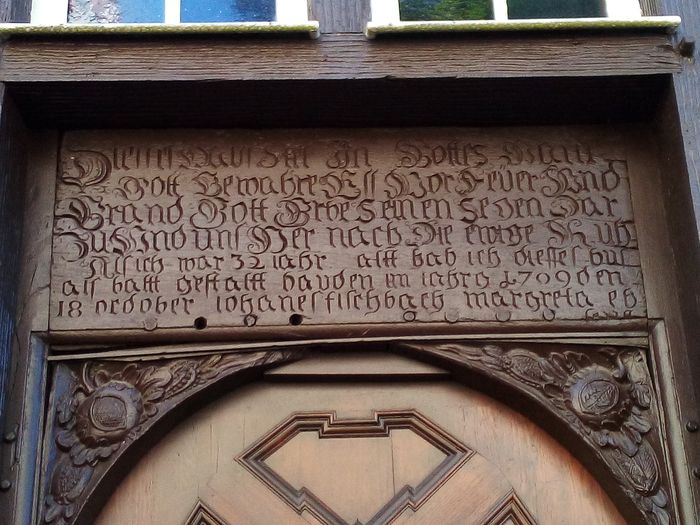 Diesses Haus Stet In Gottes Hant
Gott Bewahre Es Vor Feuer Und
Brand Gott Gebe seinen segen Dar
Zu Und uns Her nach Die ewige Ruh
Als ich war 32 iahr alt hab ich diesses hus
als baltt gestaltt bauden im iahre 1709 den
18 ordober iohanes fischbach margreta eh